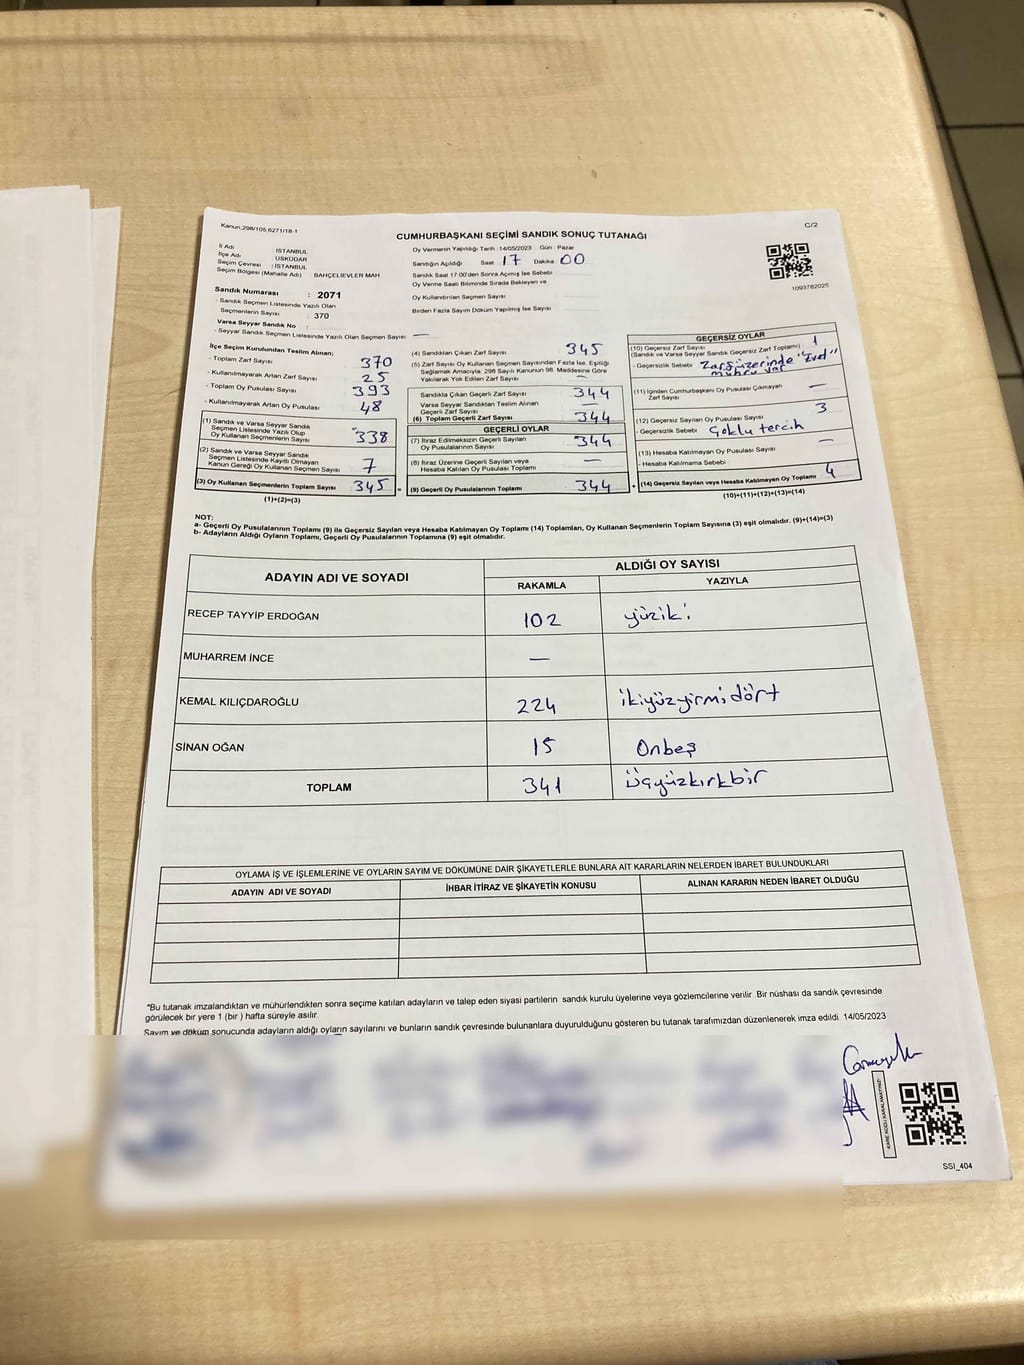 Kanun:298/105,6271/18-1
C/2
CUMHURBAŞKANI SEÇİMİ SANDIK SONUÇ TUTANAĞI
İl Adı : İSTANBUL
İlçe Adı : ÜSKÜDAR
Seçim Çevresi : İSTANBUL
Seçim Bölgesi (Mahalle Adı) : BAHÇELİEVLER MAH
Sandık Numarası : 2071
- Sandık Seçmen Listesinde Yazılı Olan
Seçmenlerin Sayısı : 370
Varsa Seyyar Sandık No :
- Seyyar Sandık Seçmen Listesinde Yazılı Olan Seçmen Sayısı : —
Oy Vermenin Yapıldığı Tarih :14/05/2023 Gün : Pazar
Sandığın Açıldığı Saat 17 Dakika 00
Sandık Saat 17.00'den Sonra Açımış İse Sebebi
Oy Verme Saati Bitiminde Sırada Bekleyen ve
Oy Kullandırılan Seçmen Sayısı
Birden Fazla Sayım Döküm Yapılmış İse Sayısı
1093782025
İlçe Seçim Kurulundan Teslim Alınan;
- Toplam Zarf Sayısı 370
- Kullanılmayarak Artan Zarf Sayısı 25
- Toplam Oy Pusulası Sayısı 393
- Kullanılmayarak Artan Oy Pusulası 48
(1) Sandık ve Varsa Seyyar Sandık
Seçmen Listesinde Yazılı Olup
Oy Kullanan Seçmenlerin Sayısı 338
(2) Sandık ve Varsa Seyyar Sandık
Seçmen Listesinde Kayıtlı Olmayan
Kanun Gereği Oy Kullanan Seçmen Sayısı 7
(3) Oy Kullanan Seçmenlerin Toplam Sayısı 345 =
(1)+(2)=(3)
(4) Sandıktan Çıkan Zarf Sayısı 345
(5) Zarf Sayısı Oy Kullanan Seçmen Sayısından Fazla İse, Eşitliği
Sağlamak Amacıyla, 298 Sayılı Kanunun 98. Maddesine Göre
Yakılarak Yok Edilen Zarf Sayısı —
Sandıkta Çıkan Geçerli Zarf Sayısı 344
Varsa Seyyar Sandıktan Teslim Alınan
Geçerli Zarf Sayısı —
(6) Toplam Geçerli Zarf Sayısı 344
GEÇERLİ OYLAR
(7) İtiraz Edilmeksizin Geçerli Sayılan
Oy Pusulalarının Sayısı 344
(8) İtiraz Üzerine Geçerli Sayılan veya
Hesaba Katılan Oy Pusulası Toplamı —
(9) Geçerli Oy Pusulalarının Toplamı 344 +
GEÇERSİZ OYLAR
(10) Geçersiz Zarf Sayısı 1
(Sandık ve Varsa Seyyar Sandık Geçersiz Zarf Toplamı)
- Geçersizlik Sebebi Zarf üzerinde "Evet"
mührü var
(11) İçinden Cumhurbaşkanı Oy Pusulası Çıkmayan
Zarf Sayısı —
(12) Geçersiz Sayılan Oy Pusulası Sayısı 3
- Geçersizlik Sebebi Çoklu tercih
(13) Hesaba Katılmayan Oy Pusulası Sayısı —
- Hesaba Katılmama Sebebi
(14) Geçersiz Sayılan veya Hesaba Katılmayan Oy Toplamı 4
(10)+(11)+(12)+(13)=(14)
NOT:
a- Geçerli Oy Pusulalarının Toplamı (9) ile Geçersiz Sayılan veya Hesaba Katılmayan Oy Toplamı (14) Toplamları, Oy Kullanan Seçmenlerin Toplam Sayısına (3) eşit olmalıdır. (9)+(14)=(3)
b- Adayların Aldığı Oyların Toplamı, Geçerli Oy Pusulalarının Toplamına (9) eşit olmalıdır.
ADAYIN ADI VE SOYADI ALDIĞI OY SAYISI
RAKAMLA YAZIYLA
RECEP TAYYİP ERDOĞAN 102 yüziki
MUHARREM İNCE —
KEMAL KILIÇDAROĞLU 224 ikiyüzyirmidört
SİNAN OĞAN 15 Onbeş
TOPLAM 341 üçyüzkırkbir
OYLAMA İŞ VE İŞLEMLERİNE VE OYLARIN SAYIM VE DÖKÜMÜNE DAİR ŞİKAYETLERLE BUNLARA AİT KARARLARIN NELERDEN İBARET BULUNDUKLARI
ADAYIN ADI VE SOYADI İHBAR İTİRAZ VE ŞİKAYETİN KONUSU ALINAN KARARIN NEDEN İBARET OLDUĞU
*Bu tutanak imzalandıktan ve mühürlendikten sonra seçime katılan adayların ve talep eden siyasi partilerin sandık kurulu üyelerine veya gözlemcilerine verilir .Bir nüshası da sandık çevresinde
görülecek bir yere 1 (bir ) hafta süreyle asılır.
Sayım ve döküm sonucunda adayların aldığı oyların sayılarını ve bunların sandık çevresinde bulunanlara duyurulduğunu gösteren bu tutanak tarafımızdan düzenlenerek imza edildi. 14/05/2023
KARE KODU KARALAMAYINIZ!
SSI_404